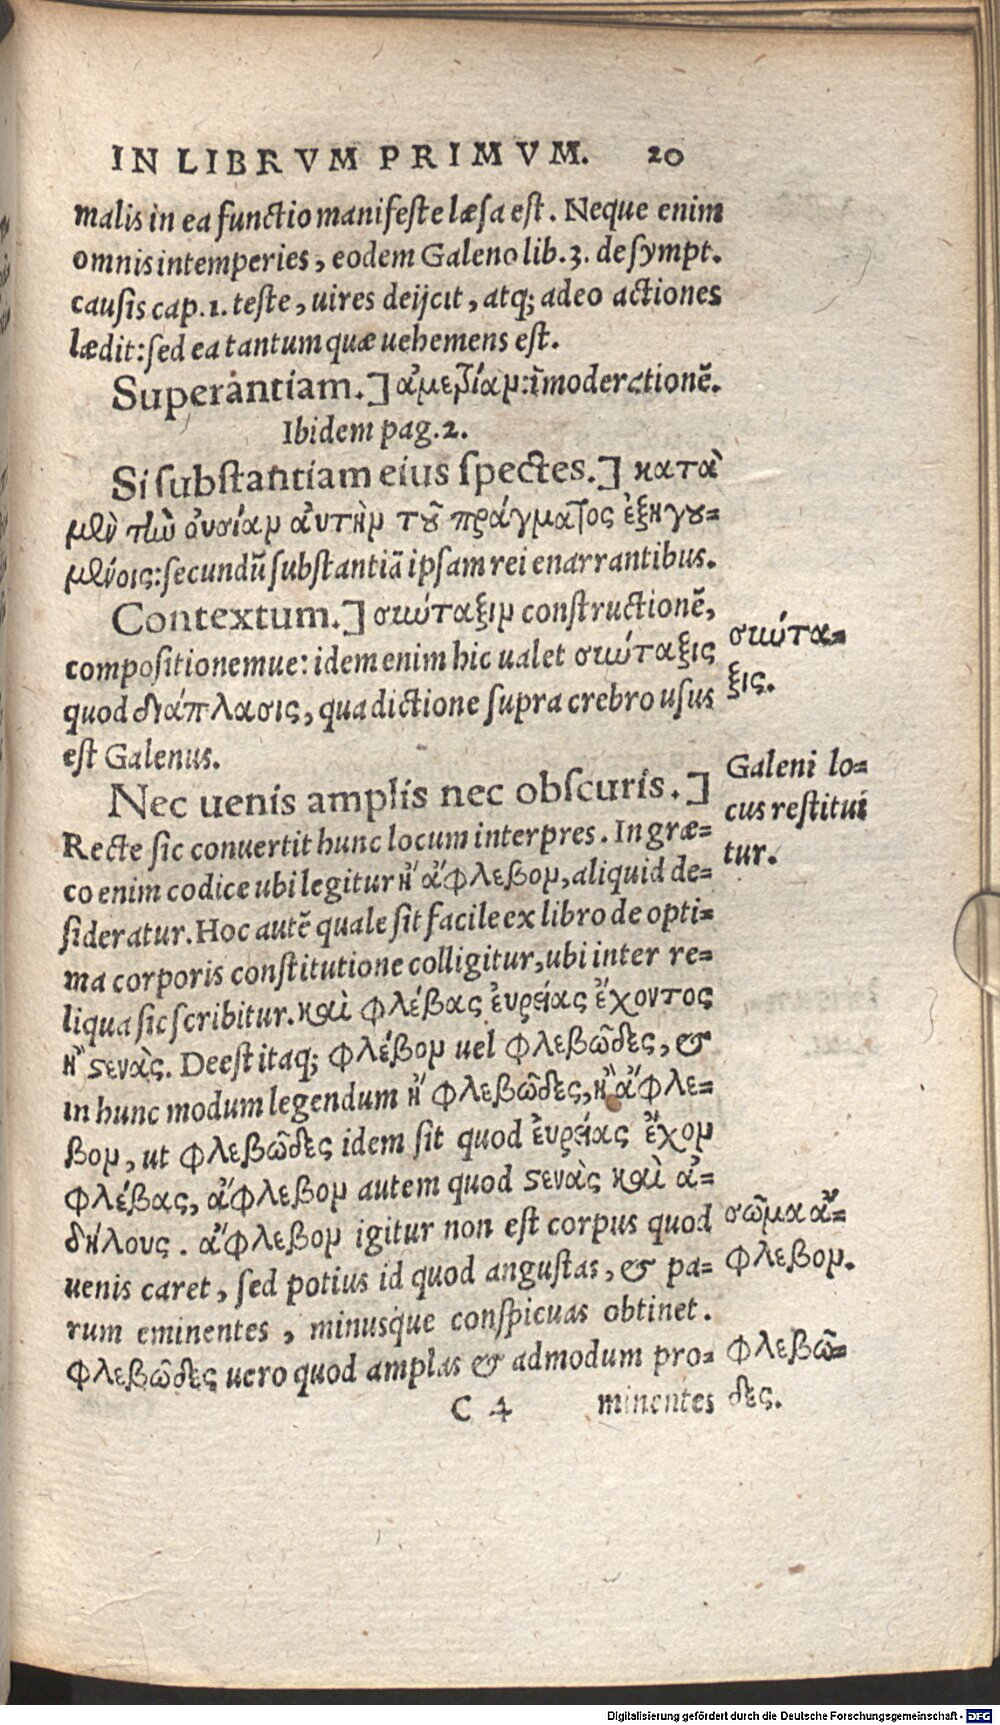 IN LIBRVM PRIMVM. 20
malis in ea functio manifeste læsa est. Neque enim
omnis intemperies, eodem Galeno lib. 3. de sympt.
causis cap. 1. teste, uires deijcit, atq; adeo actiones
lædit: sed ea tantum quæ uehemens est.
Superantiam.] ἀμετρίαν: īmoderationē.
Ibidem pag. 2.
Si substantiam eius spectes.] κατὰ
μὲν τὴν οὐσίαν ἀυτὴν τοῦ πράγματος ἐξηγου=
μένοις: secundū substantiā ipsam rei enarrantibus.
Contextum.] σύνταξιν constructionē,
compositionemue: idem enim hic ualet σύνταξις
quod διάπλασις, qua dictione supra crebro usus
est Galenus.
σύντα=
ξις.
Nec uenis amplis nec obscuris.]
Recte sic conuertit hunc locum interpres. In græ=
co enim codice ubi legitur ἢ ἄφλεβον, aliquid de=
sideratur. Hoc autē quale sit facile ex libro de opti=
ma corporis constitutione colligitur, ubi inter re=
liqua sic scribitur. καὶ φλέβας ἐυρείας ἔχοντος
ἢ στενὰς. Deest itaq; φλέβον uel φλεβῶδες, &
in hunc modum legendum ἢ φλεβῶδες, ἢ ἄφλε=
βον, ut φλεβῶδες idem sit quod ἐυρείας ἔχον
φλέβας, ἄφλεβον autem quod στενὰς καὶ ἀ=
δήλους. ἄφλεβον igitur non est corpus quod
uenis caret, sed potius id quod angustas, & pa=
rum eminentes, minusque conspicuas obtinet.
φλεβῶδες uero quod amplas & admodum pro=
Galeni lo=
cus restitui
tur.
σῶμα ἄ=
φλεβον.
φλεβῶ=
δες.
C 4 minentes
Digitalisierung gefördert durch die Deutsche Forschungsgemeinschaft - DFG